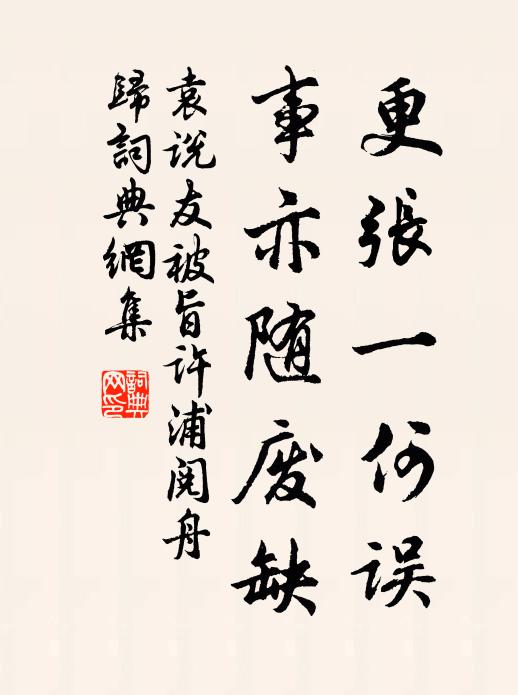 更张一何误
事亦随废缺
袁说友被旨许浦阅舟
歸詞典網集
詞典网印